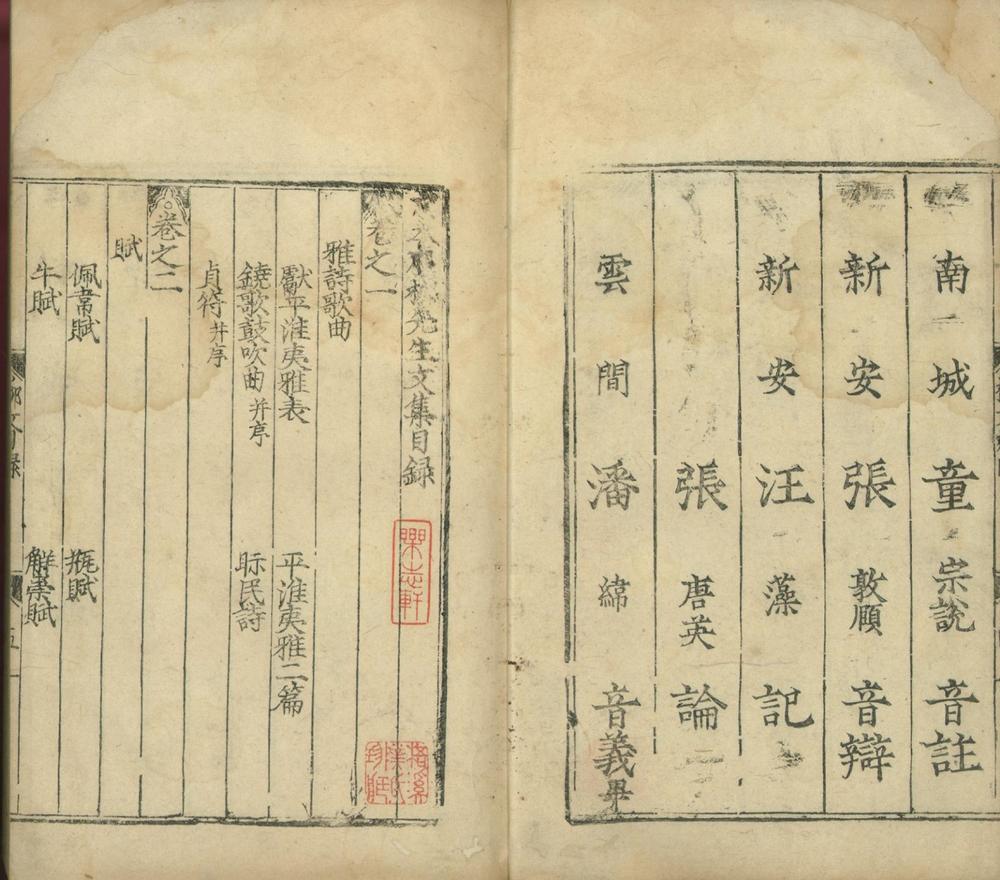 南城童宗說音註
新安張敦頤音辯
新安汪藻記
張唐英論
雲間潘緯音義畢
柳先生文集目録
卷之一
雅詩歌曲
獻平淮夷雅表 平淮夷雅二篇
鐃歌鼓吹曲并序 眎民詩
貞符并序
卷之二
賦
佩韋賦 瓶賦
牛賦 解祟賦
樂志軒